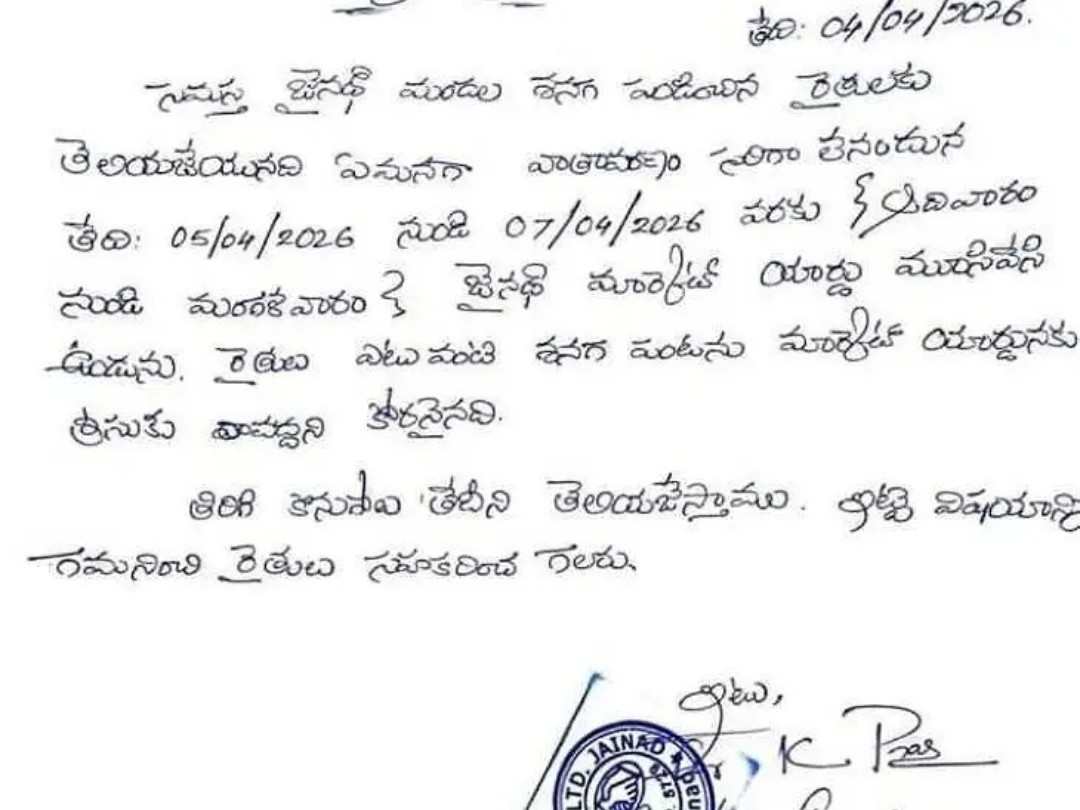 తేది: 04/04/2026.
సమస్త జైనథ్ మండల శనగ పండించిన రైతులకు
తెలియజేయునది ఏమనగా వాతావరణం సరిగా లేనందున
తేది: 05/04/2026 నుండి 07/04/2026 వరకు { ఆదివారం
నుండి మంగళవారం } జైనథ్ మార్కెట్ యార్డు మూసివేసి
ఉండును. రైతులు ఎటువంటి శనగ పంటను మార్కెట్ యార్డునకు
తీసుకు రావద్దని కోరనైనది.
తిరిగి కొనుగోలు తేదీని తెలియజేస్తాము. ఇట్టి విషయాన్ని
గమనించి రైతులు సహకరించ గలరు.
ఇటు,
LTD. JAINAD